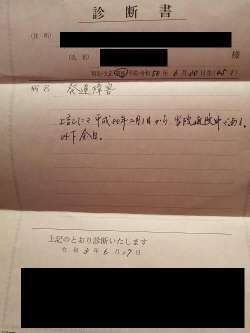 診断書
(住所)
(氏名) 様
明治・大正・昭和・平成・令和 50年 6月 20日生(45才)
病名 発達障害
上記にて平成20年2月1日から当院通院中である。
以下余白。
上記のとおり診断いたします
令和 3年 6月 17日